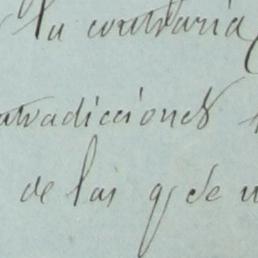 la contraria
contradicciones
de las q. se